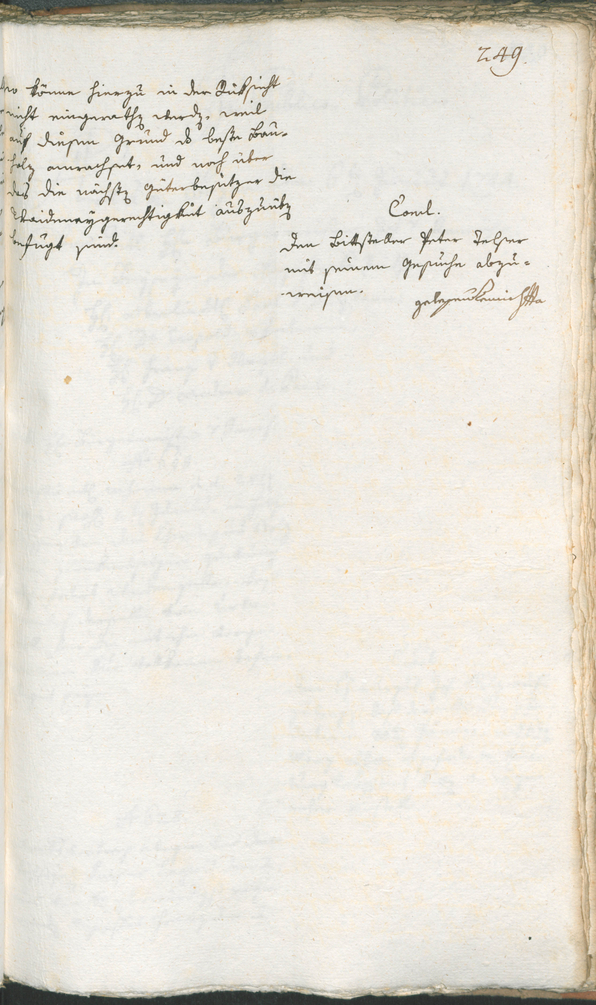 249.
wo könne hierzu in der Rüksicht
nicht eingerathen werdn, weil
auf diesem Grund ds beste Bau-
holz anwachset, und noch über
das die nächstn Güterbesitzer die
Waidneygerechtigkeit auszuübn
befügt sind.
Concl.
Den Bittsteller Peter Telser
mit seinem Gesuche abzu-
weisen.